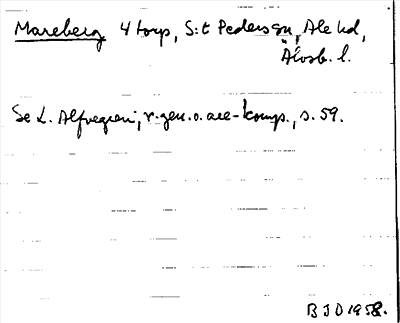 Mareberg 4 torp, S:t Peders sn, Ale hd,
Älvsb. l.
Se L. Alfvegren, r-gen. o. ace-komp., s. 59.
BJO 1958.